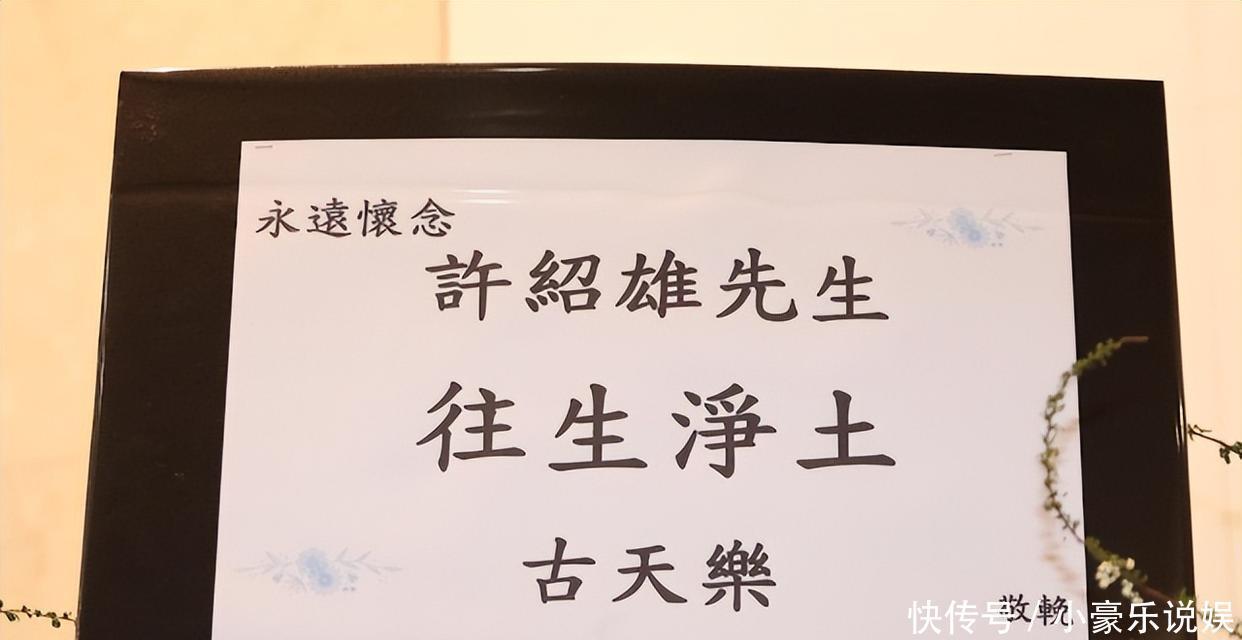 永遠懷念
許紹雄先生
往生淨土
古天樂
敬輓
快传号/小豪乐说娱